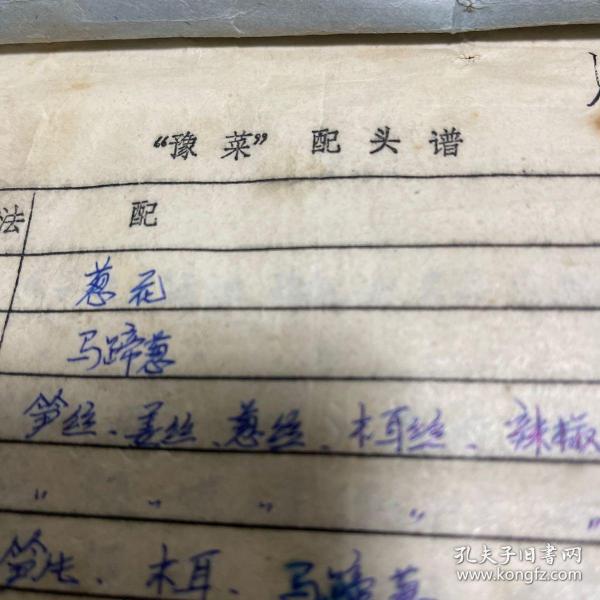 “豫菜”配头谱
法 配
葱花
马蹄葱
笋丝、姜丝、葱丝、木耳丝、辣椒
〃 〃 〃 〃 〃
笋片、木耳、马蹄葱
孔夫子旧书网
www.kongfz.com